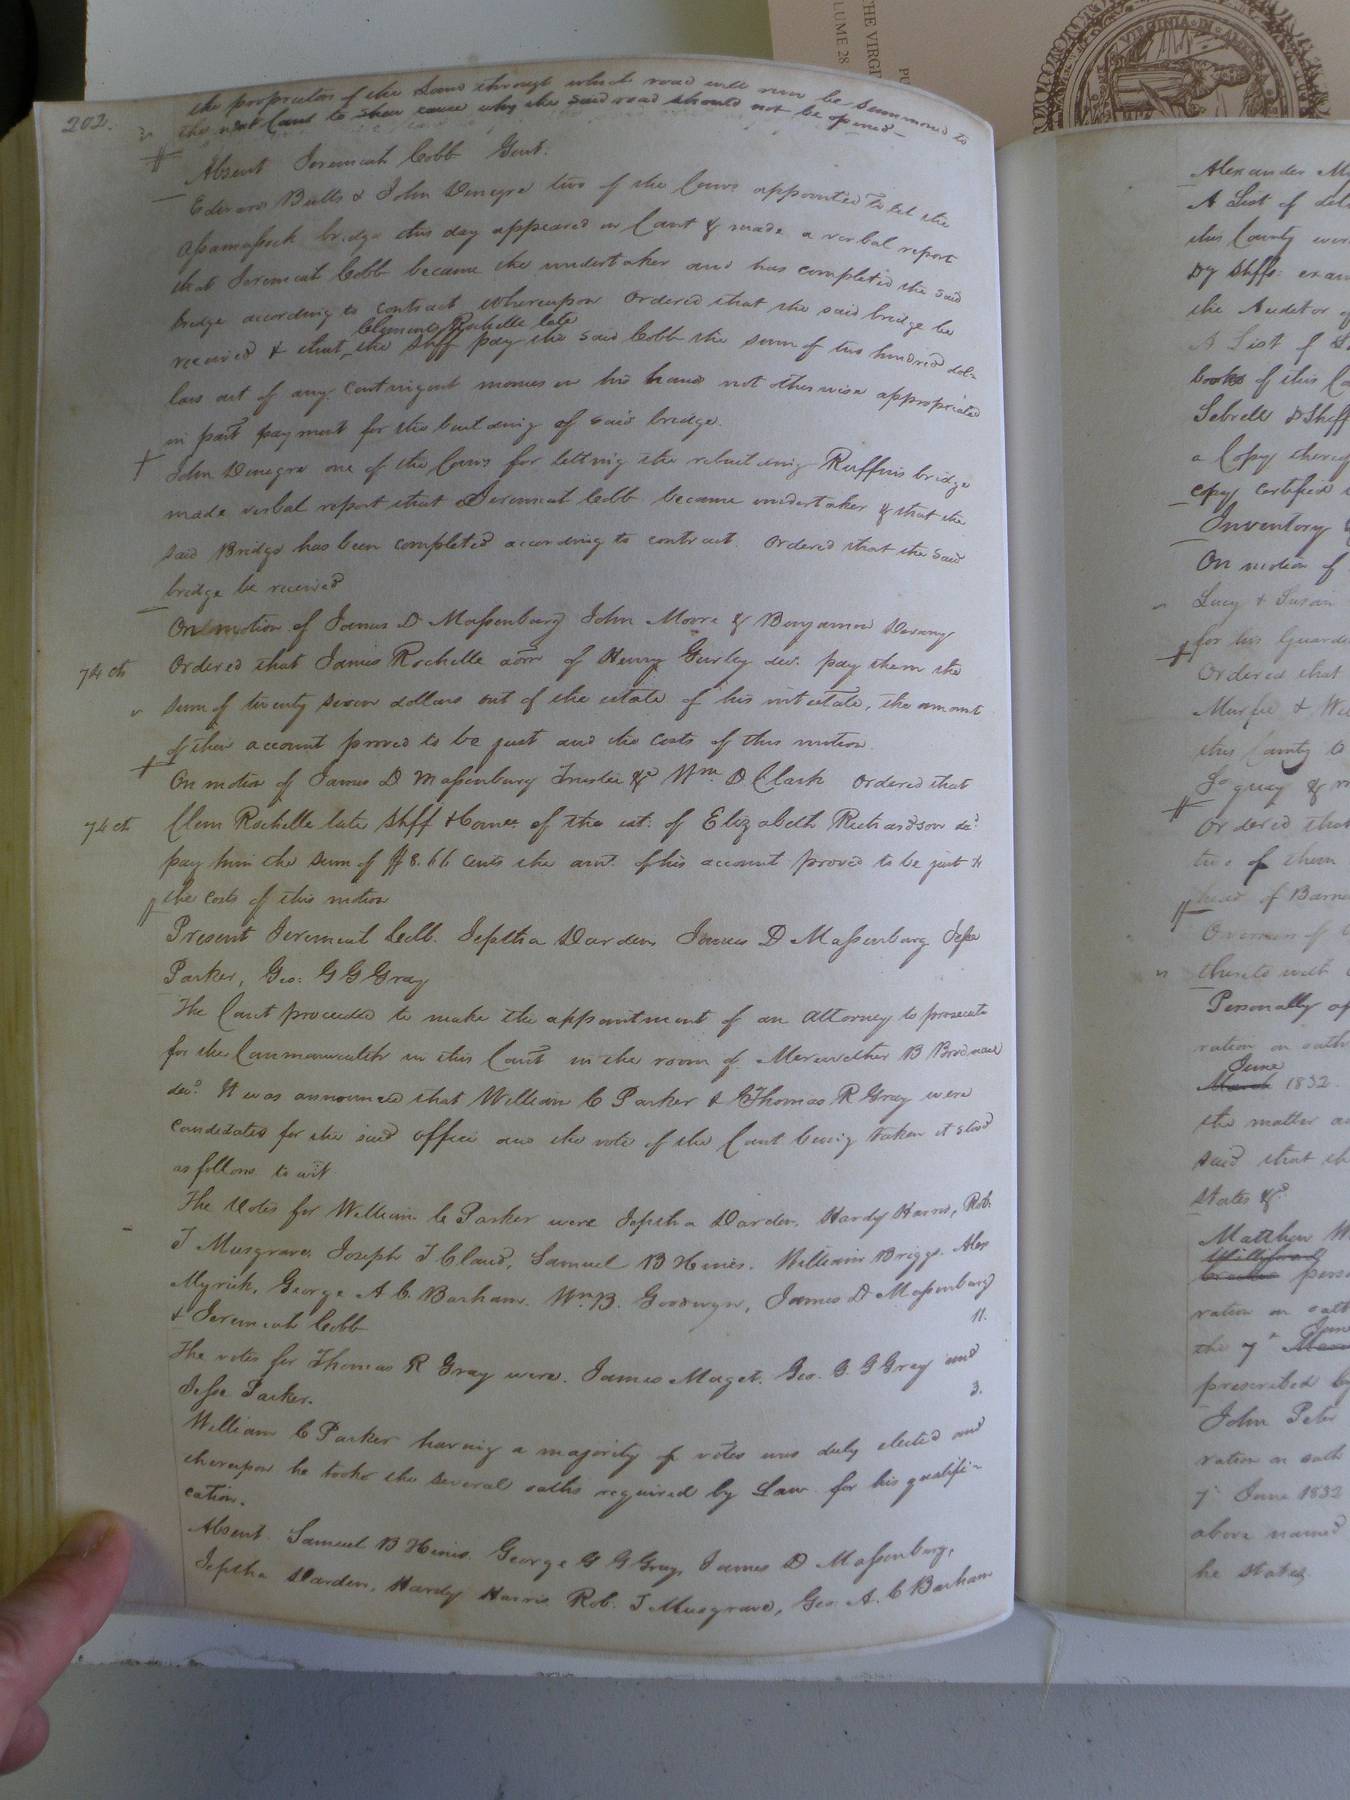 THE VIRGI
LUME 28
PU
VIRGINIA
202.
the proprietors of the Land through which road will run be summoned to
the next Court to shew cause why the said road should not be opened—
Absent Jeremiah Cobb Gent.
Edward Butts & John Denegre two of the Comrs appointed to let the
Assamoosick bridge this day appeared in Court & made a verbal report
that Jeremiah Cobb became the undertaker and has completed the said
bridge according to contract whereupon ordered that the said bridge be
Clements Rochelle late
received & that the Shff pay the said Cobb the sum of two hundred dol-
lars out of any contingent monies in his hands not otherwise appropriated
in part payment for the building of said bridge.
John Denegre one of the Comrs for letting the rebuilding Ruffins bridge
made verbal report that Jeremiah Cobb became undertaker & that the
said Bridge has been completed according to contract. Ordered that the said
bridge be received
On motion of James D Massenburg John Moore & Benjamin Devany
74 ch Ordered that James Rochelle adm of Henry Gurley dec. pay them the
sum of twenty seven dollars out of the estate of his intestate, the amount
of their account proved to be just and the costs of this motion.
On motion of James D Massenburg Trustee &c Wm. D. Clark ordered that
74 ch Clem Rochelle late Shff & Comee. of the est. of Elizabeth Richardson decd
pay him the sum of $8.66 cents the amt. of his account proved to be just &
the costs of this motion
Present Jeremiah Cobb. Jeptha Darden James D Massenburg Jesse
Parker, Geo: G G Gray
The Court proceeded to make the appointment of an Attorney to prosecute
for the Commonwealth in this Court in the room of Meriwether B Brodnax
decd. It was announced that William C Parker & Thomas R Gray were
candidates for the said office and the vote of the Court being taken it stood
as follows to wit
The Votes for William C Parker were Jeptha Darden, Hardy Harris, Rob.
T Musgrave, Joseph T Claud, Samuel B Hines. William Briggs. Alex
Myrick, George A. C. Barham. Wm B. Goodwyn, James D Massenburg
& Jeremiah Cobb 11.
The votes for Thomas R Gray were. James Maget. Geo. G. G Gray and
Jesse Parker. 3.
William C Parker having a majority of votes was duly elected and
thereupon he took the several oaths required by Law for his qualifi-
cation.
Absent. Samuel B Hines. George G G Gray, James D Massenburg,
Jeptha Darden, Hardy Harris Rob. T Musgrave, Geo. A. C Barham
Alexander M
A List of
this County
Dy Shffs:
the Auditor
A List of
books of this
Sebrell D Shff
a Copy
copy certified
Inventory
On motion of
Lucy & Susan
for his Guardi
Ordered that
Murfee &
this County to
Ordered that
two of them
head of Barne
Overseer of
thereto with
Personally ap
ration on oath
June
March 1832.
the matter
said that
states &c
Matthew W
Williford
pers
ration on oath
June
the 7th
prescribed by
John Peter
ration on oath
7th June 1832
above named
he states